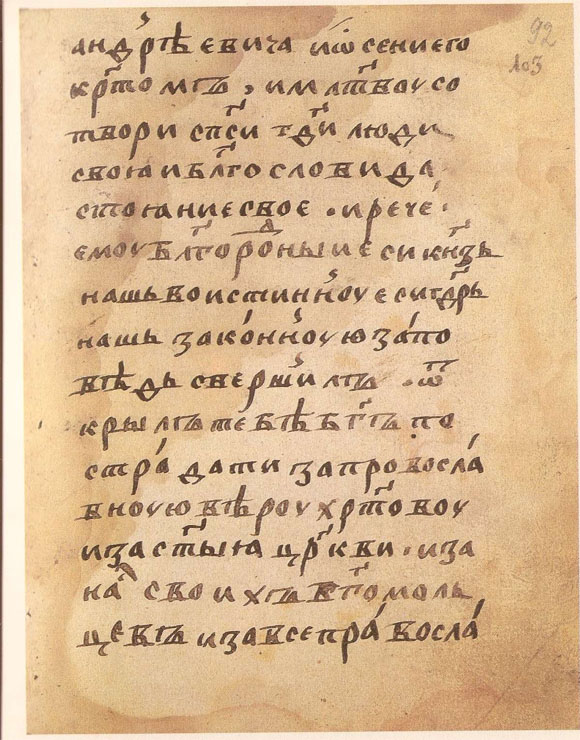 92
103
андрѣевича и ѡсени его
крⷭ҇томъ, и мл҃твоу со
твори сп҃си гд҇и люди
своя и бл҃гослови до
стояние свое · и рече
емоу бл҃городныи еси кн҃зь
нашь воистинноу еси гдⷭ҇рь
нашь законноую запо
вѣдь свершилъ · ѿ
крылъ тебѣ б҃гъ по
страдати за провосла
вноую вѣроу хрⷭ҇товоу
и за ст҃ыя цр҃кви · и за
на своихъ б҃гомоль
цевъ и за все правосла